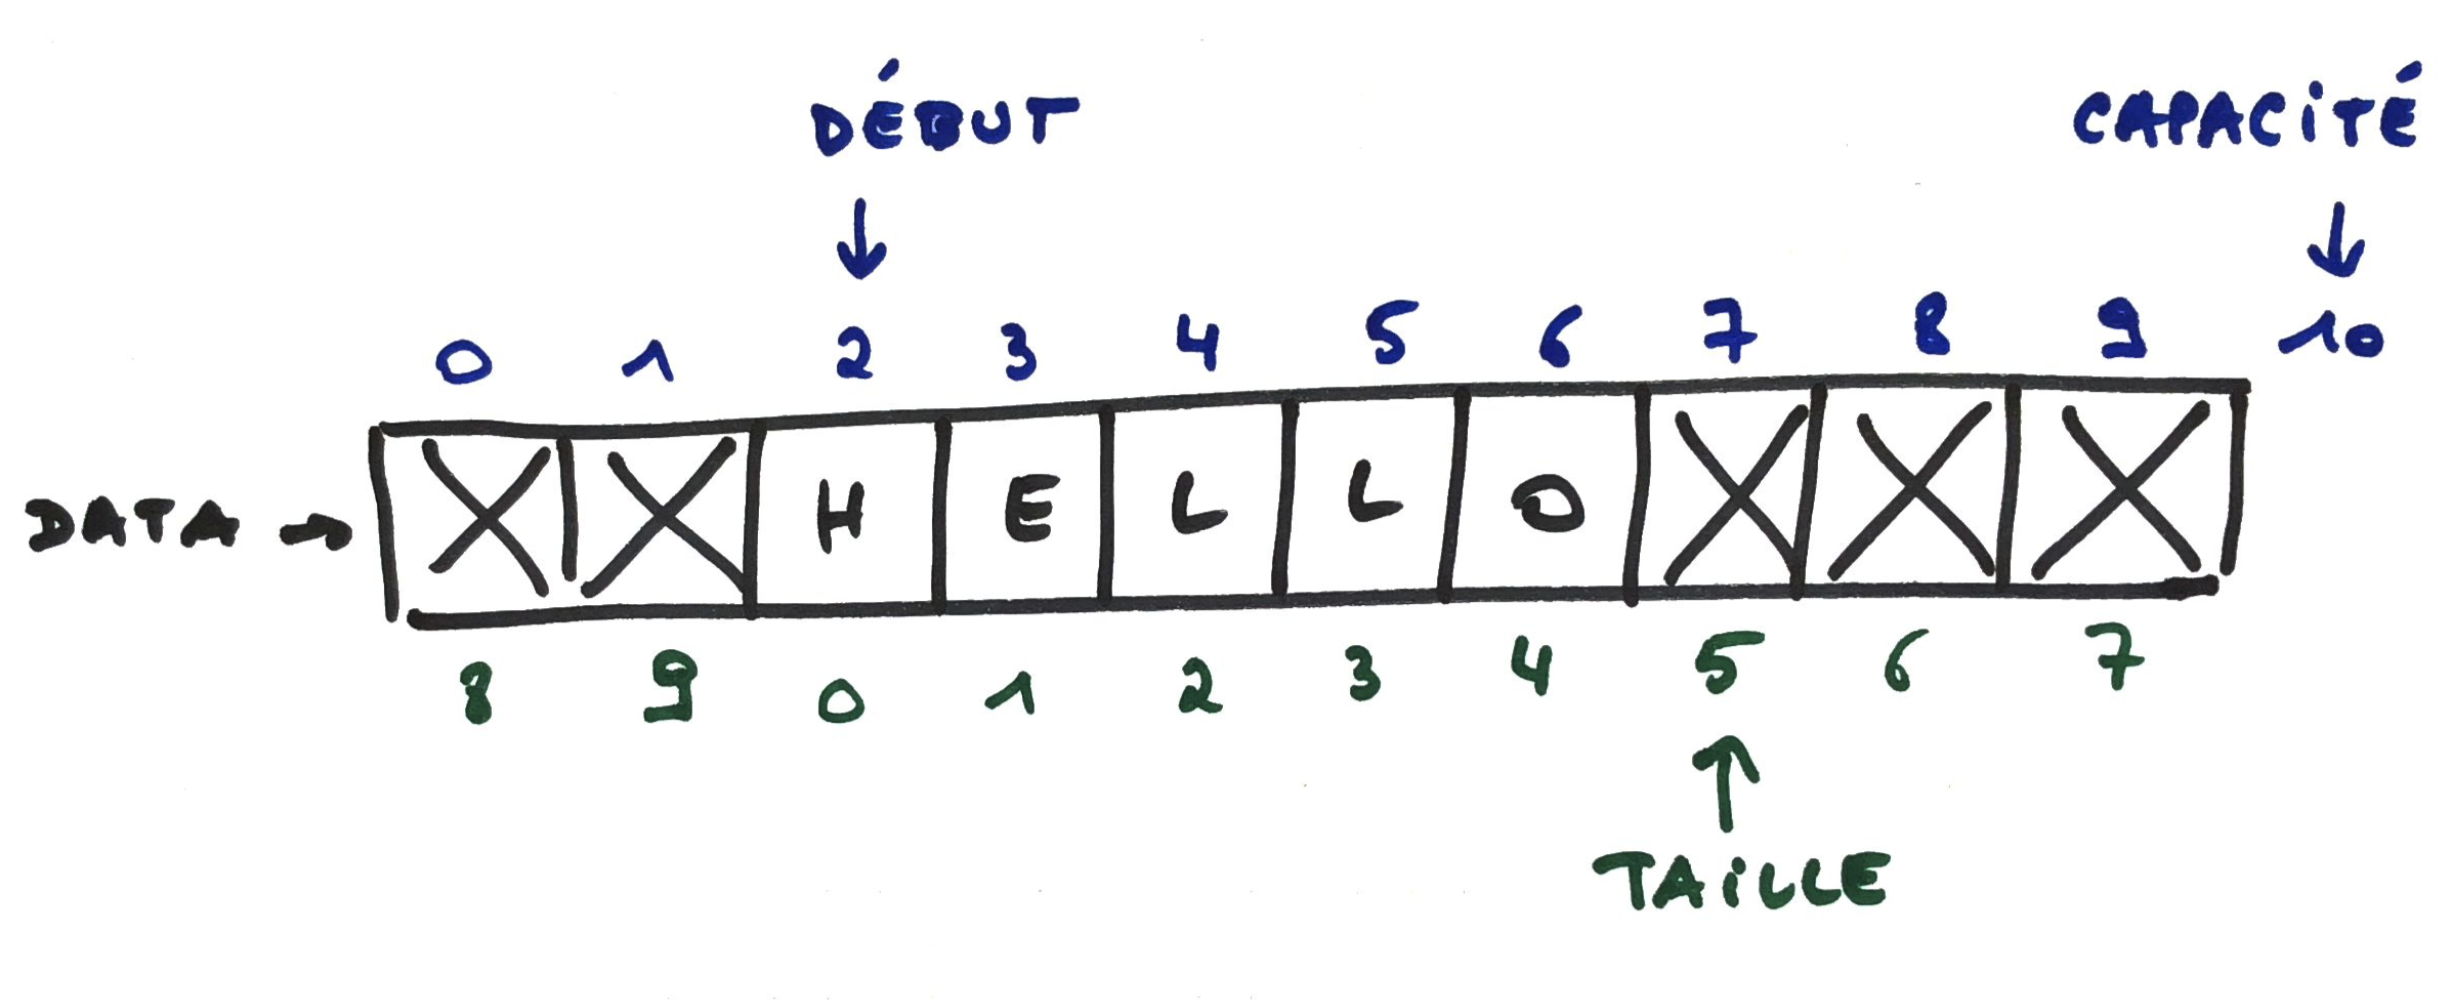 DÉBUT CAPACiTÉ
↓ ↓
0 1 2 3 4 5 6 7 8 9 10
DATA → X X H E L L O X X X
8 9 0 1 2 3 4 5 6 7
↑
TAiLLE